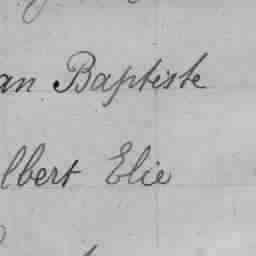 an Baptiste
lbert Elie